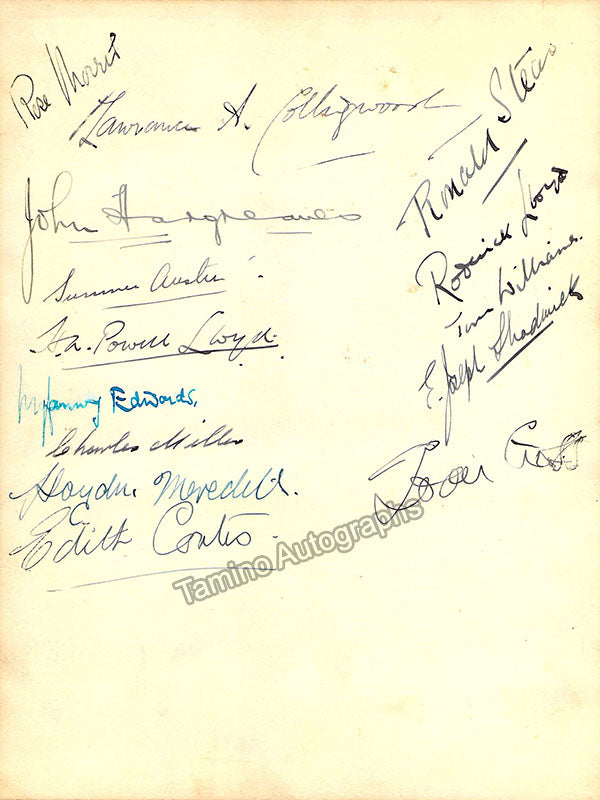 Rose Morris
Lawrance A. Collingwood
Ronald Stear
John Hargreaves
Roderick Lloyd
Sumner Austin
Tom Williams
H. Powell Lloyd
E. Joseph Shadwick
Myfanwy Edwards.
Charles Miller
Haydn Meredith.
Edith Coates
Tamino Autographs